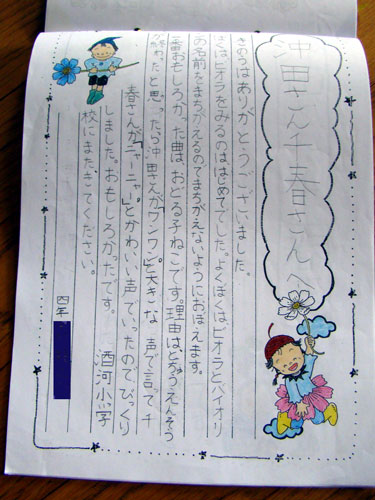 沖田さん千春さんへ
きのうはありがとうございました。
ぼくはビオラをみるのははじめてでした。よくぼくはビオラとバイオリ
お名前をまちがえるのでまちがえないようにおぼえます。
一番おもしろかった曲は、おどる子ねこです。理由はとちゅうえんそう
が終わったと思ったら沖田さんが「ワンワン」と大きな声で言って千
春さんが「ニャーニャ」とかわいい声でいったのでびっくり
しました。おもしろかったです。 酒河小学
校にまたきてください。
四年